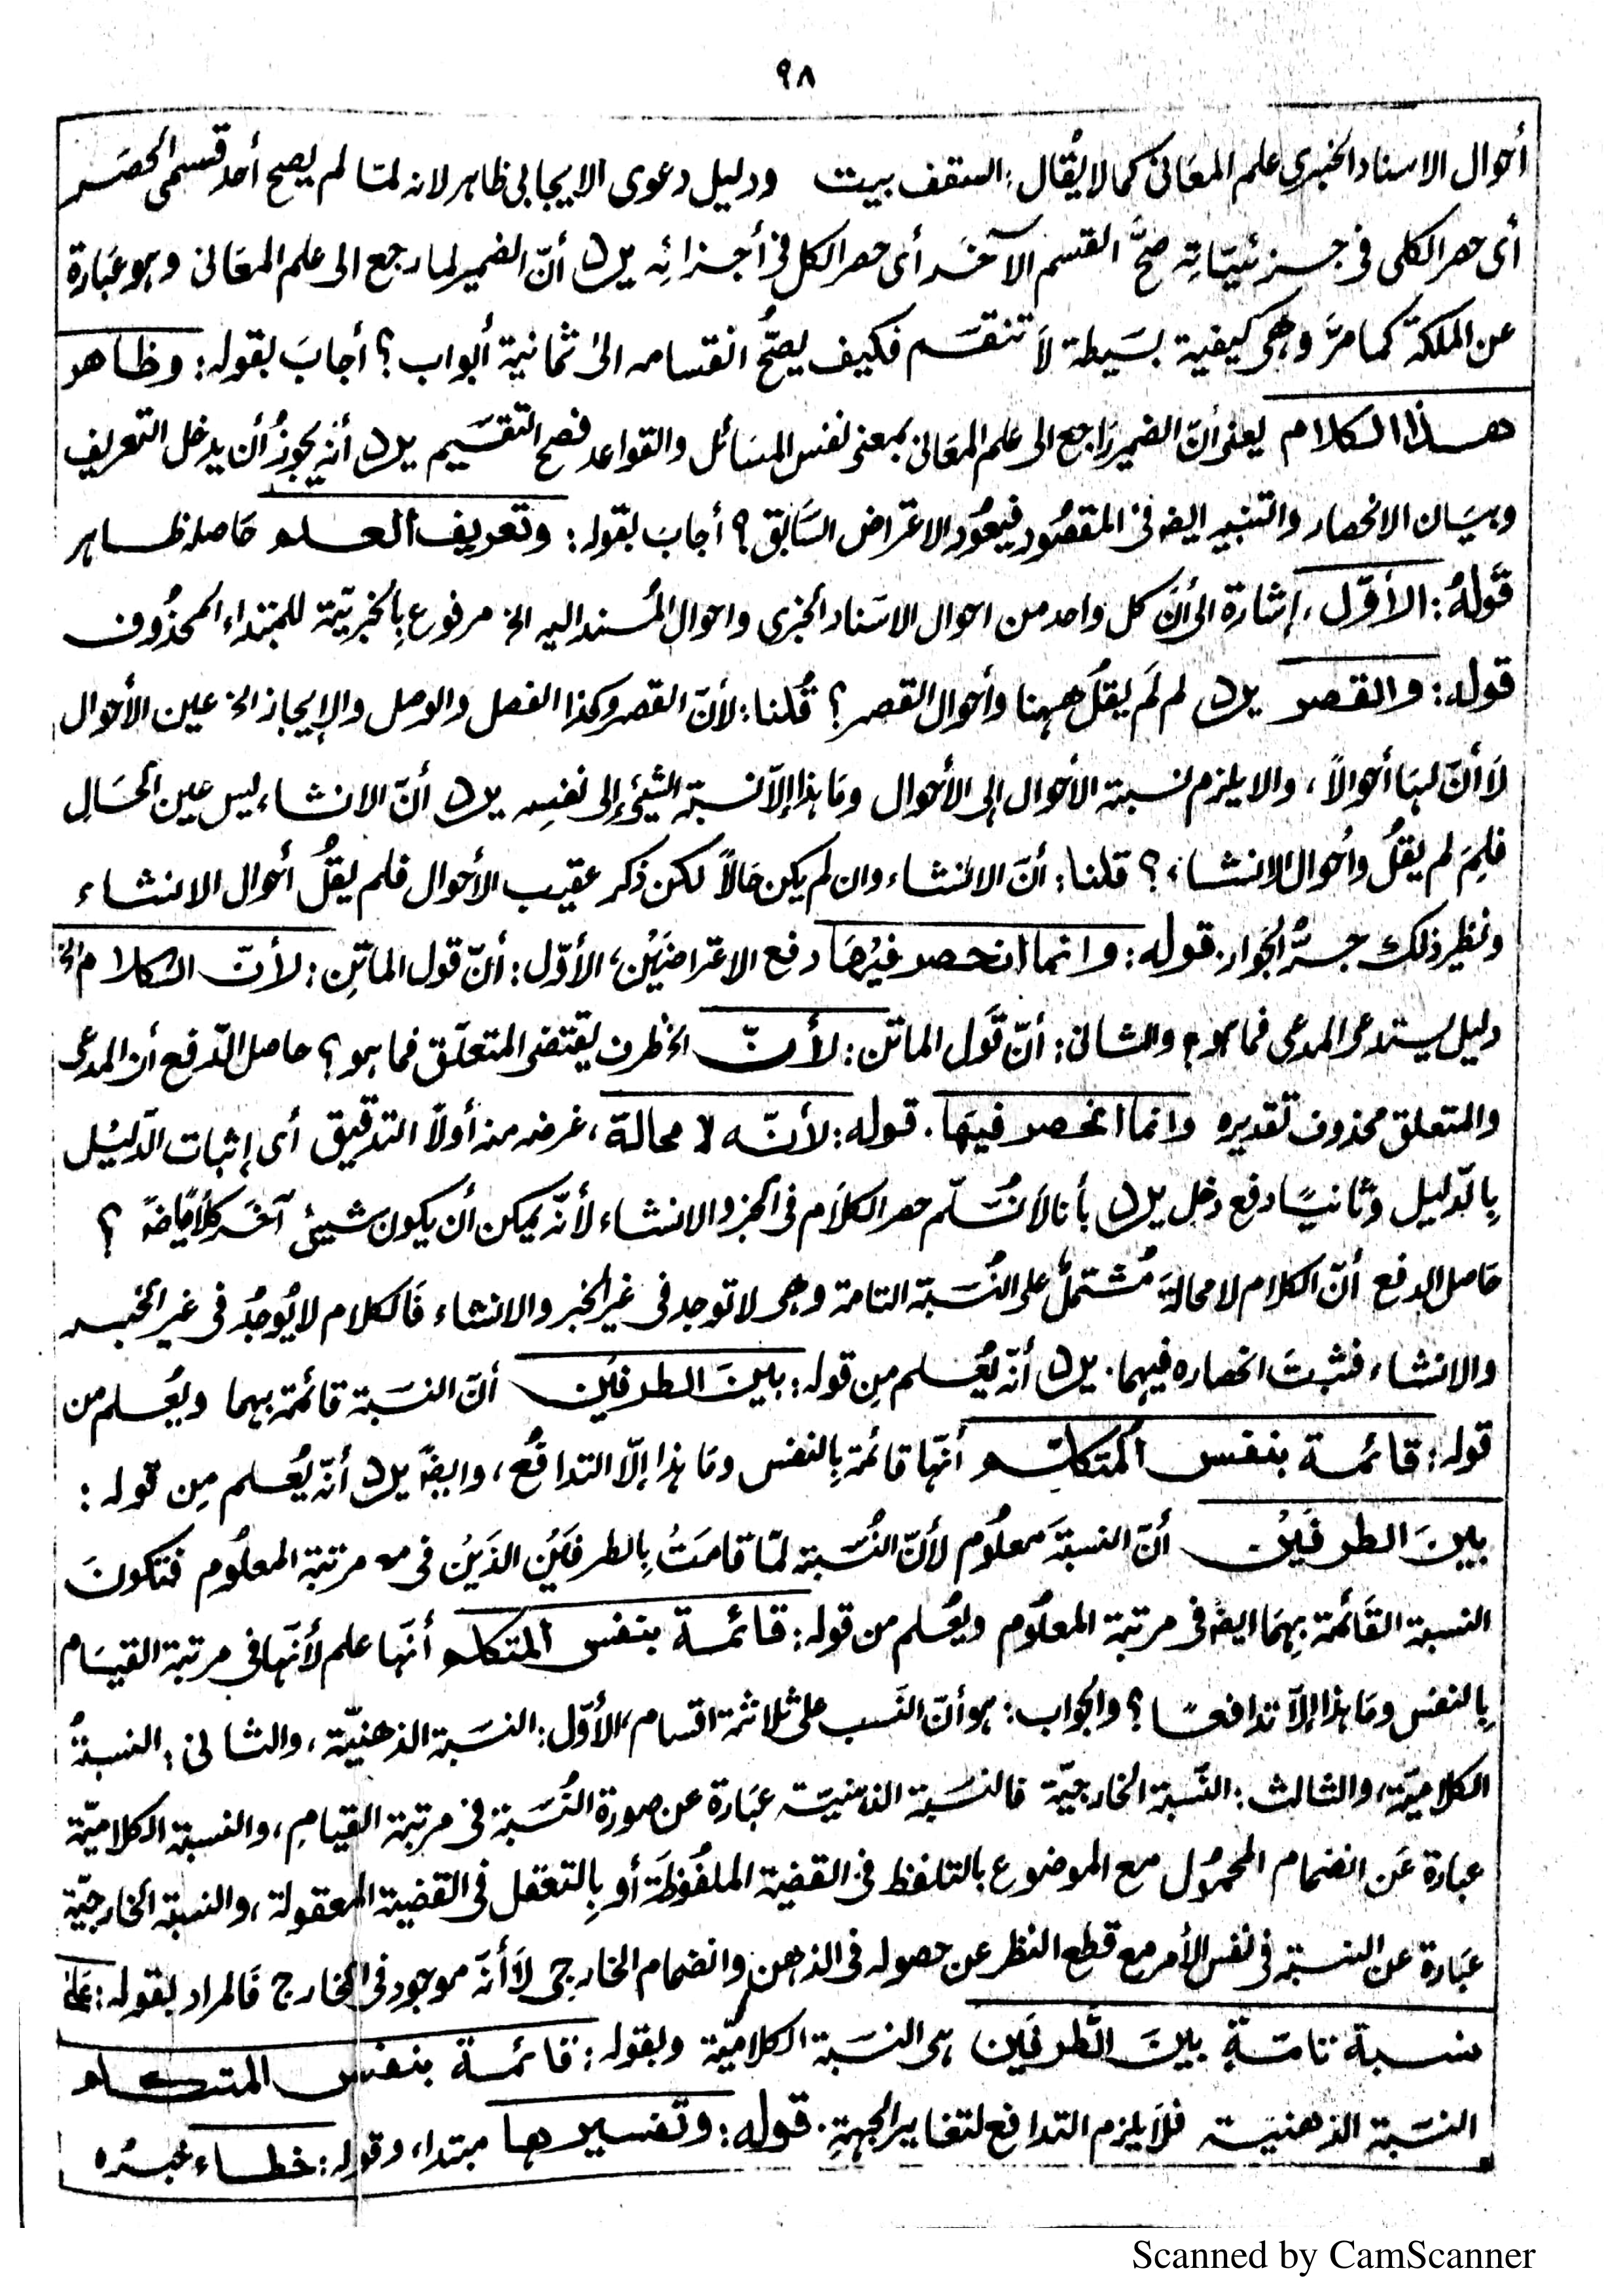 ٩٨
أحوال الاسناد الخبري علم المعَانى كما لا يُقال: السقف بيت ودليل دعوى الايجابى ظاہر لانہ لمّا لم يصح أحد قسمى الحصَر
أى حصر الكلى فى جزئيّاتہ صحَّ القسم الآخَر أى حصر الكل فى أجزائہ يرد أنّ الضمير لما رجع الى علم المعَانى وہو عبَارة
عن الملكة كما مرَّ وهى كيفية بسَيطة لاَ تنقسَم فكيف يصحُّ انقسامہ الىٰ ثمانية أبواب؟ أجابَ بقولہ: وظاهر
هذا الكلام يعنى أنّ الضمير رَاجع الى علم المعَانى بمعنى نفس المسَائل والقواعد فصح التقسَيم يرد أنہ يجوزُ أن يدخل التعريف
وبيَان الانحصار والتنبيہ ايضہ فى المقصُود فيعُود الاعتراض السَّابق؟ أجابَ بقولہ: وتعريف العلم حَاصلہ ظاہر
قَولہُ: الأوّل، إشارة الى أنّ كل واحد من احوال الاسنَاد الخبرى واحوال المُسند اليہ الخ مرفوع بِالخبريّة للمبتداء المحذُوف
قولہ: والقصر يرد لم لَم يقلُ ههنا وأحوال القصر؟ قُلنا: لأنّ القصر وكذا الفصل والوصل والإيجاز الخ عين الأحوال
لاَ أنّ لہَا أحوالاً، والا يلزم نسبة الأحوال إلى الأحوال ومَا ہذا إلاّ نسبة الشيئ إلى نفسِہ يرد أنّ الانشاء ليس عين الحَالِ
فلِمَ لم يقلُ وأحوال الانشاء؟ قلنا: أنّ الانشاء وان لم يكن حَالاً لكن ذكر عقيب الأحوال فلم يقلُ أحوال الانشاء
ونظير ذلك جرُّ الجوار. قولہ: وانما انحصر فيْهَا دفع الاعتراضَيْنِ، الأوّل: أنّ قول الماتِن: لأنّ الكلام الخ
دليل يستدعى المدعى فما ہو؟ والثانى: أنّ قَول الماتن: لأنّ الخ ظرف يقتضى المتعلّق فما ہو؟ حاصل الدّفع أن المدعى
والمتعلق محذوف تقديرہ وانما انحصر فيهَا. قولہ: لأنّہ لا محالة، غرضہ منہ أولاً التدقيق أى إثبات الدّليُل
بِالدّليل وثانيًا دفع دخل يرد بأنا لاَ نُسَلّم حصر الكلاَم فى الخبر والانشاء لأنّہ يمكن أن يكون شيئ آخَر كلاَمًا ايضًا؟
حَاصل الدفع أنّ الكلام لا محالة مُشتملٌ على النُسَبة التامة وهى لا توجد فى غير الخبر والانشاء فَالكلام لا يُوجدُ فى غير الخبر
والانشاء فثبتَ انحصارہ فيہما. يرد أنّہ يُعلم مِن قولہ: بينَ الطرفيْن أنّ النسَبة قائمة بہما ويعُلم من
قولہ: قائمة بنفس المتكلّم أنّہا قائمة بِالنفس ومَا ہذا إلّا التدافُع، وايضًا يرد أنّہ يُعلم مِن قولہ:
بينَ الطرفَيْن أنّ النسبَةَ معلُوم لأنّ النُسَّبة لمّا قامَتُ بِالطرفَيْن الذَيْنُ فى مہ مرتبة المعلُوم فتكونَ
النسبة القَائمة بہِمَا ايضہ فى مرتبة المعلُوم ويعُلم من قولہ: قائمة بنفس المتكلم أنّہَا علم لأنّہَا فى مرتبة القيَام
بِالنفس ومَا ہذا إلاّ تدافعًا؟ والجواب: ہو أنّ النّسَب على ثلاثة اقسام، الأوّل: النسَبة الذهنيّة، والثانى: النسبةُ
الكلاميّة، والثالث: النّسبة الخارجيّة فالنسَبة الذہنيّة عبَارة عن صورة النُسَبة فى مرتبة القيامِ، والنسبة الكلاميّة
عبارة عَن انضمام المحمُول مع الموضوع بالتلفظ فى القضية الملفُوظَة أو بِالتعقل فى القضية المعقولة، والنسبة الخارجيّة
عبَارة عن النسبة فى نفس الأمر مع قطع النظر عن حصولہ فى الذهن وانضمام الخارجى لاَ أنّہ موجود فى الخارج فَالمراد بقولہ: عَلىٰ
نسبة تامّةٍ بينَ الطّرفَين ہى النسَبة الكلاميّة وبقولہ: قائمة بنفس المتكلم
النسَبة الذهنيّة فلاَ يلزم التدافع لتغاير الجہةِ. قولہ: وتفسيرها مبتداء وقولہ: خطاء خبرُہ
Scanned by CamScanner